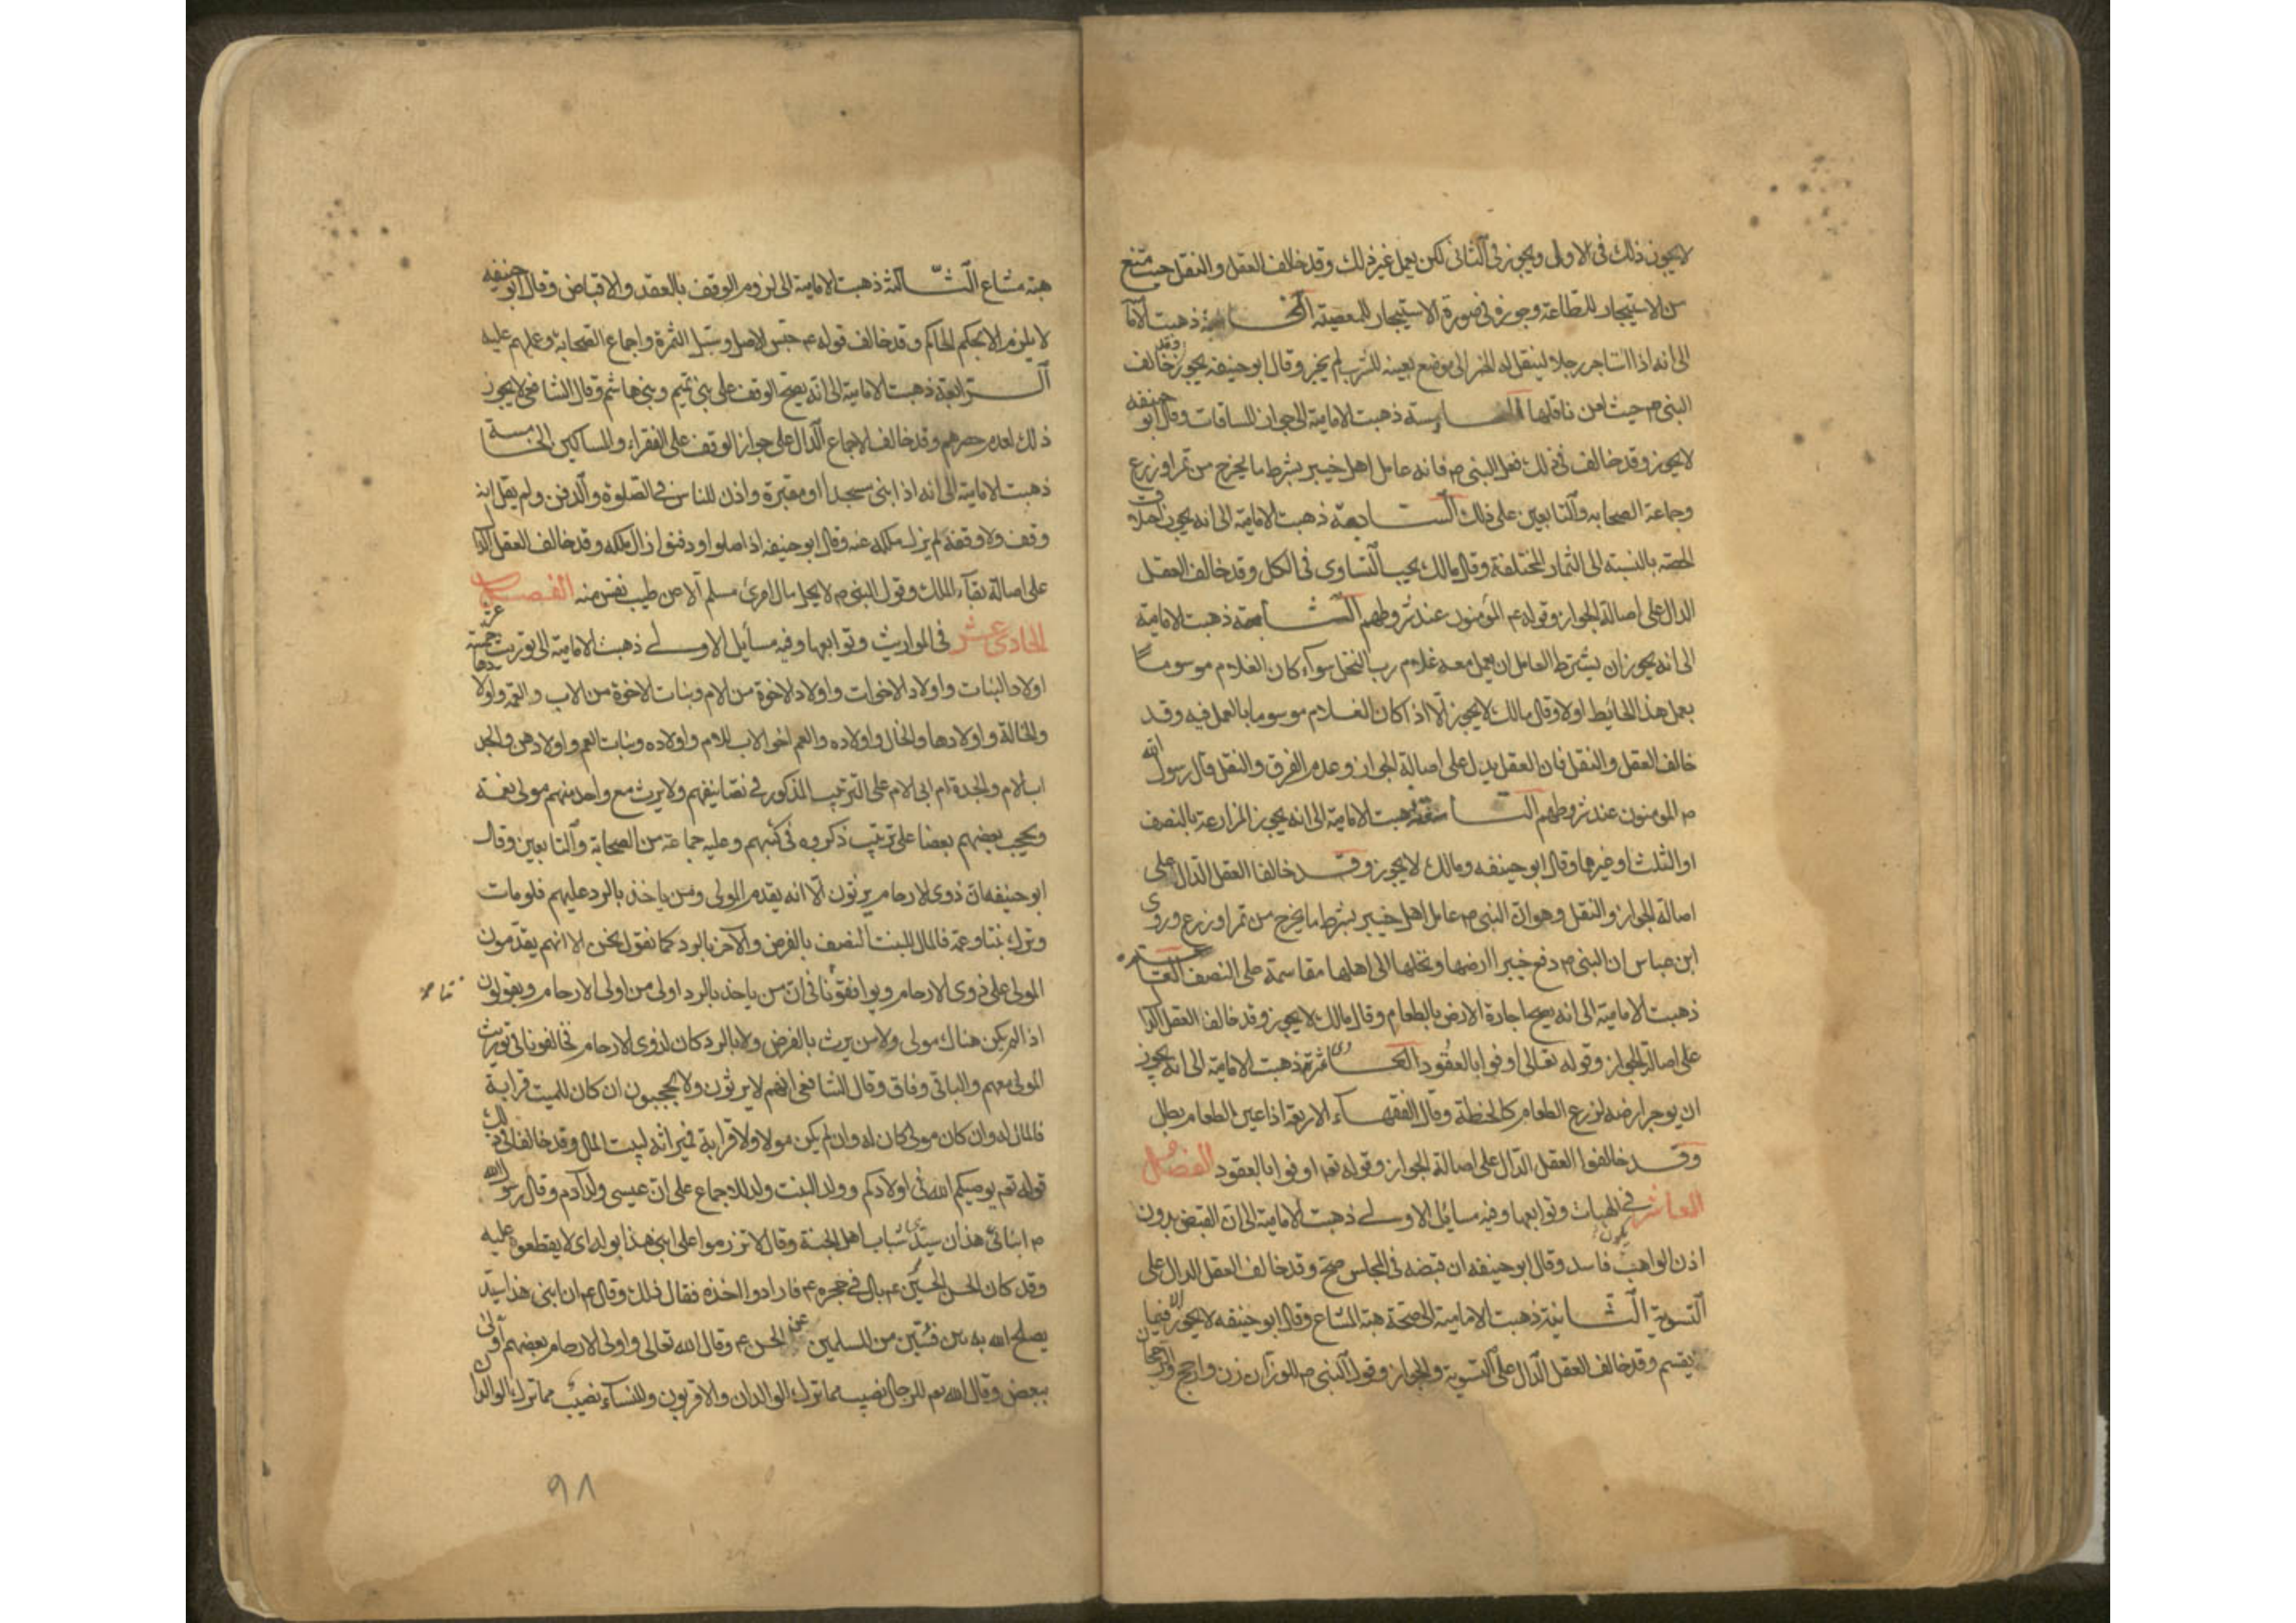 لا يجوز ذلك في الاولى ويجوز في الثاني لكن يعمل غير ذلك وقد خالف العقل والنقل حيث منع
من الاستيجار للطاعة وجوزه في صورة الاستيجار للمعصية الخامسة ذهبت الاماميّة
الى انه اذا استاجر رجلا لينقل له الخمر الى موضع بعينه للشرب لم يجز وقال ابو حنيفه يجوز وقد خالف
النبي ص حيث لعن ناقلها السادسة ذهبت الامامية الى جواز المساقات وقال ابو حنيفه
لا يجوز وقد خالف في ذلك فعل النبي ص فانه عامل اهل خيبر بشرط ما يخرج من ثمر او زرع
وجماعة الصحابه والتابعين على ذلك السابعة ذهبت الامامية الى انه يجوز اختلاف
الحصة بالنسبة الى الثمار المختلفة وقال مالك يجب التساوى في الكل وقد خالف العقل
الدال على اصالة الجواز وقوله عم المؤمنون عند شروطهم الثامنة ذهبت الامامية
الى انه يجوز ان يشترط العامل ان يعمل معه غلام رب النخل سواء كان الغلام موسوما
بعمل هذا الحائيط اولا وقال مالك لا يجوز الا اذا كان الغلام موسوما بالعمل فيه وقد
خالف العقل والنقل فان العقل يدل على اصالة الجواز وعدم الفرق والنقل قال رسول الله
ص المومنون عند شروطهم التاسعة ذهبت الامامية الى انه يجوز المزارعة بالنصف
او الثلث او غيرها وقال ابو حنيفه ومالك لا يجوز وقد خالفا العقل الدال على
اصالة الجواز والنقل وهو ان النبي ص عامل اهل خيبر بشرط ما يخرج من ثمر او زرع وروى
ابن عباس ان النبي ص دفع خيبرا ارضها ونخلها الى اهلها مقاسمة على النصف العاشره
ذهبت الامامية الى انه يصح اجارة الارض بالطعام وقال مالك لا يجوز وقد خالف العقل الدال
على اصالة الجواز وقوله تعالى اوفوا بالعقود الحادى عشرة ذهبت الامامية الى انه يجوز
ان يوجر ارضه لزرع الطعام كالحنطة وقال الفقهاء الاربعة اذا عين الطعام بطل
وقد خالفوا العقل الدال على اصالة الجواز وقوله تعه اوفوا بالعقود الفصل
العاشر في الهبات وتوابعها وفيه مسائل الاولى ذهبت الامامية الى ان القبض بدون
اذن الواهب يكون فاسد وقال ابو حنيفه ان قبضه في المجلس صح وقد خالف العقل الدال على
التسوية الثانية ذهبت الامامية الى صحة هبة المشاع وقال ابو حنيفه لا يجوز الا فيما
يقسم وقد خالف العقل الدال على التسوية والجواز وقول النبي ص للوزان زن وارجح والرجحان
هبة مشاع الثالثة ذهبت الامامية الى لزوم الوقف بالعقد والاقباض وقال ابو حنيفه
لا يلزم الا بحكم الحاكم وقد خالف قوله عم حبس الاصل وسبّل الثمرة واجماع الصحابة وعملهم عليه
الرابعة ذهبت الامامية الى انه يصح الوقف على بني تميم وبني هاشم وقال الشافعي لا يجوز
ذلك لعدم حصرهم وقد خالف الاجماع الدال على جواز الوقف على الفقراء والمساكين الخامسة
ذهبت الامامية الى انه اذا بنى مسجدا او مقبرة واذن للناس في الصلوة والدفن ولم يقل انه
وقف ولا وقفه لم يزل ملكه عنه وقال ابو حنيفه اذا صلوا او دفنوا زال ملكه وقد خالف العقل الدال
على اصالة بقاء الملك وقول النبي ص لا يحل مال امرئ مسلم الا عن طيب نفس منه الفصل
الحادى عشر في المواريث وتوابعها وفيه مسأيل الاولى ذهبت الامامية الى توريث خمسة عشر
اولاد البنات واولاد الاخوات واولاد الاخوة من الام وبنات الاخوة من الاب والعمة واولادها
والخالة واولادها والخال واولاده والعم اخو الاب للام واولاده وبنات العم واولادهن والجد
اب الام والجدة ام ابى الام على الترتيب المذكور في تصانيفهم ولا يرث مع واحد منهم مولى نعمة
ويحجب بعضهم بعضا على ترتيب ذكروه في كتبهم وعليه جماعة من الصحابة والتابعين وقال
ابو حنيفه ان ذوى الارحام يرثون الا انه يقدم المولى ومن ياخذ بالرد عليهم فلو مات
وترك بنتا وعمة فالمال للبنت النصف بالفرض والاخر بالرد كما نقول نحن الا انهم يقدمون
المولى على ذوى الارحام ويوافقونا في ان من ياخذ بالرد اولى من اولى الارحام ويقولون
اذا لم يكن هناك مولى ولا من يرث بالفرض ولا بالرد كان لذوى الارحام فخالفونا في توريث
المولى معهم والباقي وفاق وقال الشافعي انهم لا يرثون ولا يحجبون ان كان للميت قرابة
فالمال له وان كان مولى كان له وان لم يكن مولا ولا قرابة فميراثه لبيت المال وقد خالفا في ذلك
قوله تعه يوصيكم الله في اولادكم وولد البنت ولد للاجماع على ان عيسى ولد ادم وقال رسول الله
ص ابنائى هذان سيدا شباب اهل الجنة وقال لا تزرموا على ابني هذا بوله اى لا يقطعوه عليه
وقد كان الحسن الحسين عم بال في حجره عم فارادوا اخذه فقال ذلك وقال عم ان ابني هذا سيد
يصلح الله به بين فئتين من المسلمين عن الحسن عم وقال الله تعالى واولى الارحام بعضهم اولى
ببعض وقال الله تعه للرجال نصيب مما ترك الوالدان والاقربون وللنساء نصيب مما ترك الوالدان
٩٨